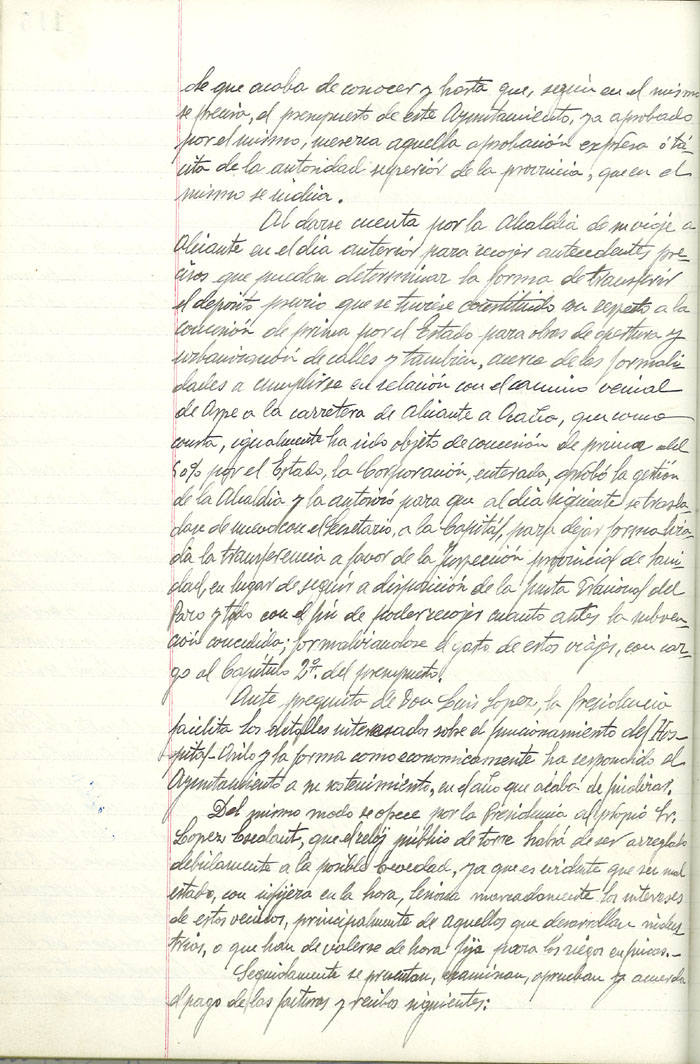 de que acaba de conocer y hasta que, según en el mismo
se precisa, el presupuesto de este Ayuntamiento, ya aprobado
por el mismo, merezca aquella aprobación expresa ó tá-
cita de la autoridad superior de la provincia, que en el
mismo se indica.
Al darse cuenta por la Alcaldía de su viaje a
Alicante en el día anterior para recojer antecedentes pre-
cisos que puedan determinar la forma de transferir
el depósito previo que se tuviese constituido con respecto a la
concesión de prima por el Estado para obras de apertura y
urbanización de calles y también, acerca de las formali-
dades a cumplirse en relación con el camino vecinal
de Aspe a la carretera de Alicante a Ocaña, que como
consta, igualmente ha sido objeto de concesión de prima del
50% por el Estado, la Corporación, enterada, aprobó la gestión
de la Alcaldía y la autorizó para que al día siguiente se trasla-
dase de nuevo con el Secretario, a la Capital, para dejar formaliza-
da la transferencia a favor de la Inspección provincial de Sani-
dad, en lugar de seguir a disposición de la Junta Nacional del
Paro y todo con el fin de poder recojer cuanto antes la subven-
ción concedida; formalizándose el gasto de estos viajes, con car-
go al Capítulo 2º. del presupuesto.
Ante pregunta de Don Luis Lopez, la Presidencia
facilita los detalles interesados sobre el funcionamiento del Hos-
pital-Asilo y la forma como economicamente ha respondido el
Ayuntamiento a su sostenimiento, en el año que acaba de finalizar.
Del mismo modo se ofrece por la Presidencia al propio Sr.
Lopez, que el reloj público de torre habrá de ser arreglado
debidamente a la posible brevedad, ya que es evidente que su mal
estado, con infijeza en la hora, lesiona marcadamente los intereses
de estos vecinos, principalmente de aquellos que desarrollan indus-
trias, o que han de valerse de hora fija para los riegos en fincas.-
Seguidamente se presentan, examinan, aprueban y acuerda
el pago de las facturas y recibos siguientes: